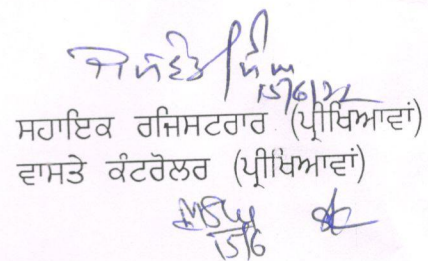 15/6/22
ਸਹਾਇਕ ਰਜਿਸਟਰਾਰ (ਪ੍ਰੀਖਿਆਵਾਂ)
ਵਾਸਤੇ ਕੰਟਰੋਲਰ (ਪ੍ਰੀਖਿਆਵਾਂ)
15/6